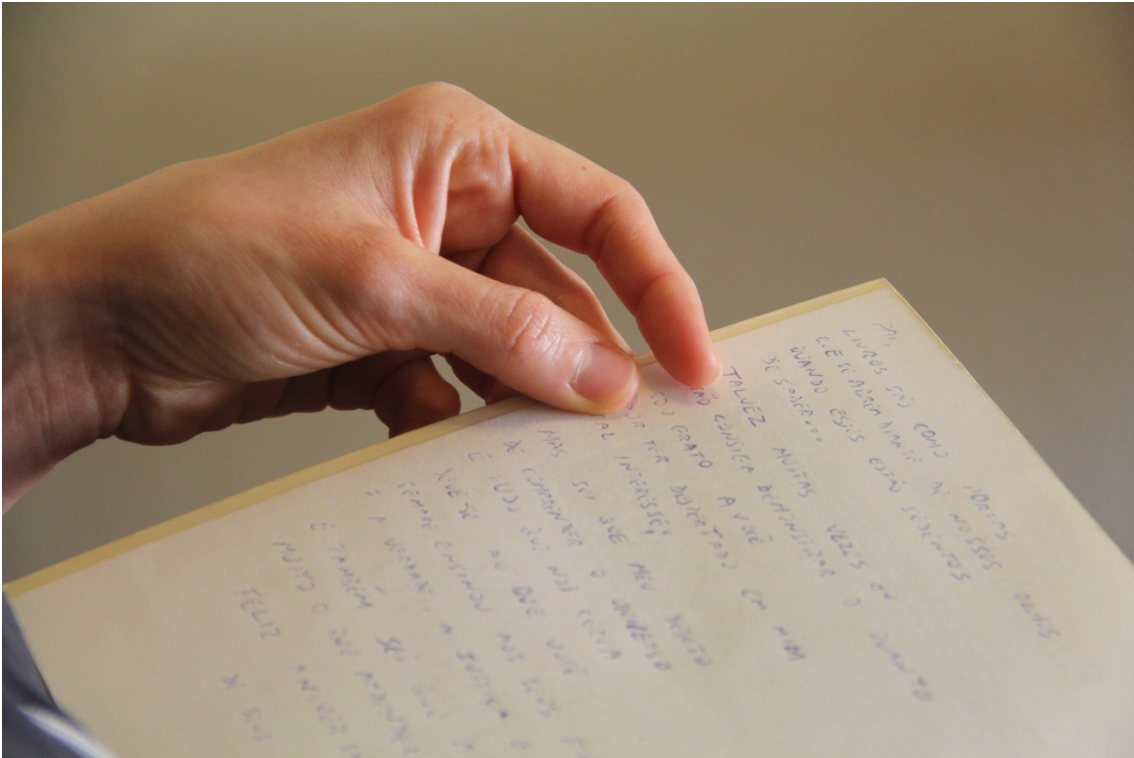 PAI,
LIVROS SÃO COMO PORTAS
QUE SE ABREM DIANTE DE NOSSOS OLHOS
QUANDO ESTES ESTÃO SEDENTOS
DE SABER...
TALVEZ MUITAS VEZES EU
NÃO CONSIGA DEMONSTRAR O QUANTO
SOU GRATO A VOCÊ
POR TER DESPERTADO EM MIM
TAL INTERESSE,
MAS SEI QUE MEU DESEJO
DE COMPREENDER O UNIVERSO
E TUDO QUE NOS CERCA
QUE VOCÊ
SEMPRE ENSINOU AOS SEUS
É A VERDADE, A JUSTIÇA E
É TAMBÉM SEI QUE
MUITO O QUE APRENDER
FELIZ